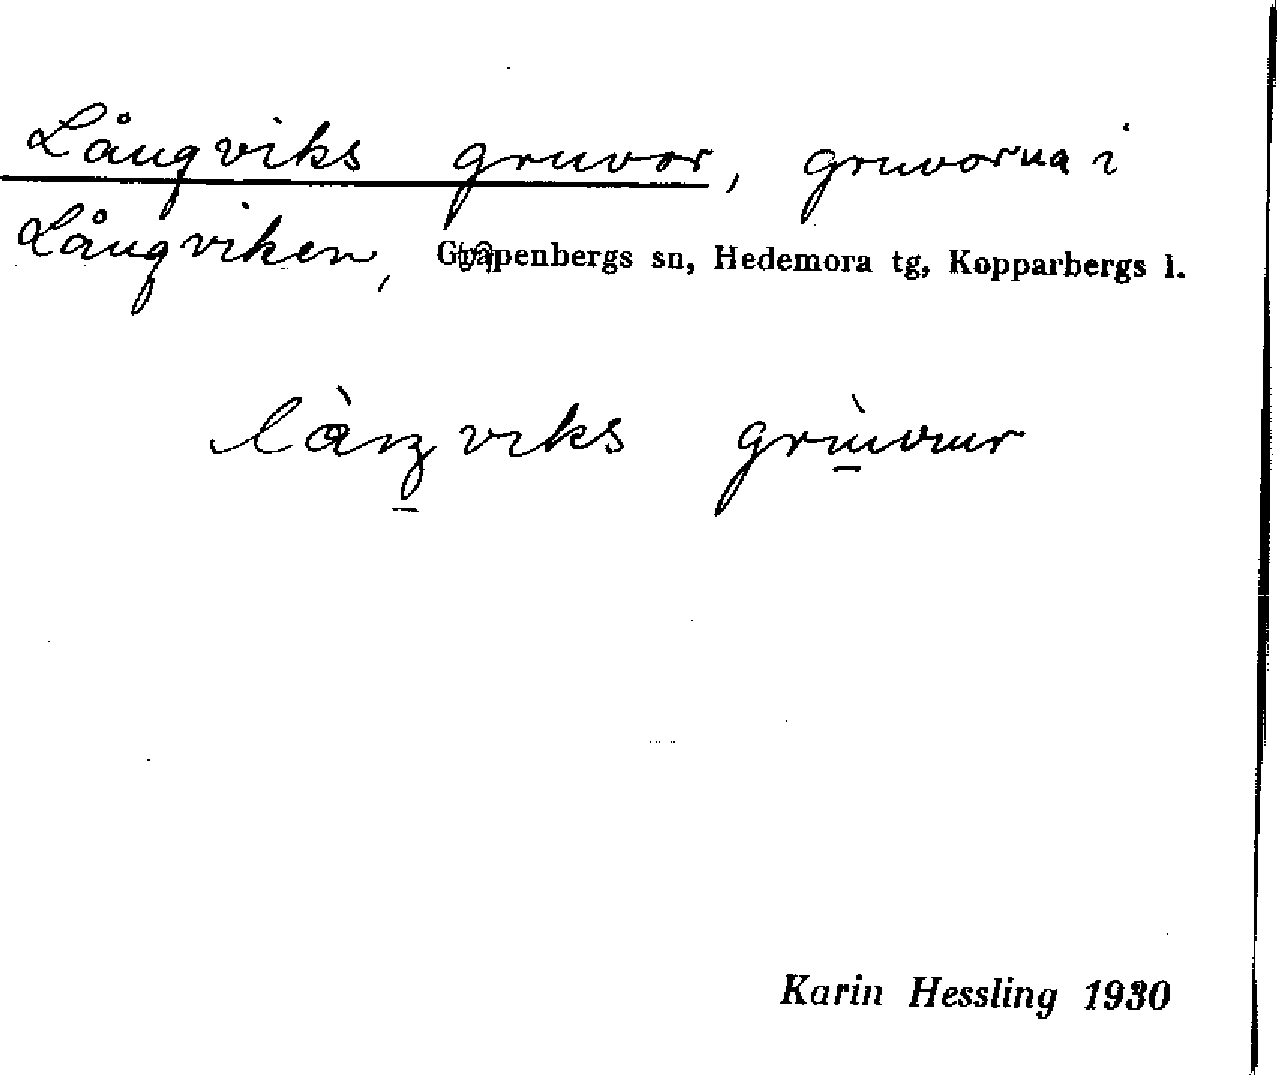 Långviks gruvor, gruvorna i
Långviken, Garpenbergs sn, Hedemora tg, Kopparbergs l.
viks
Karin Hessling 1930